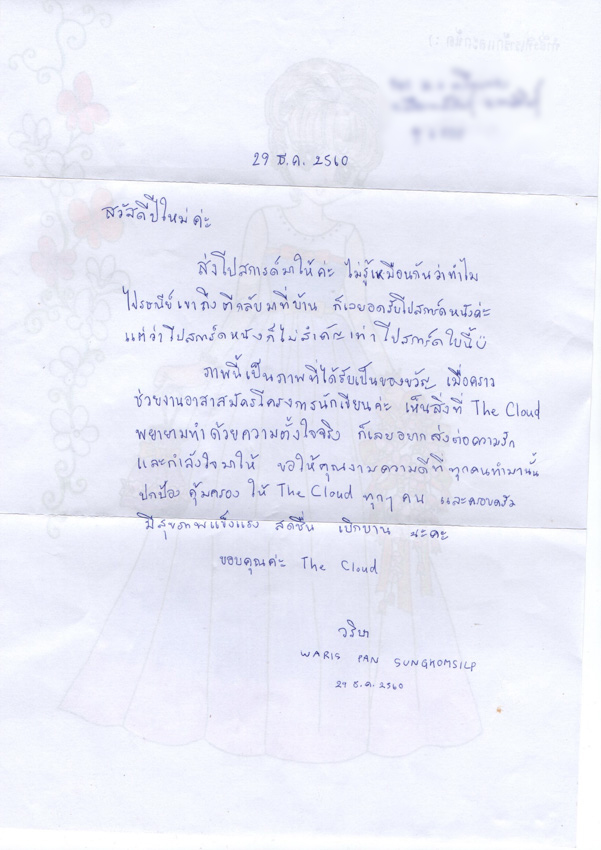 29 ธ.ค. 2560
สวัสดีปีใหม่ค่ะ
ส่งโปสการ์ดมาให้ค่ะ ไม่รู้เหมือนกันว่าทำไม
ไปรษณีย์เขาถึงตีกลับมาที่บ้าน ก็เลยอดรับโปสการ์ดหนังค่ะ
แต่ว่าโปสการ์ดหนังก็ไม่สำคัญเท่าโปสการ์ดใบนี้
ภาพนี้เป็นภาพที่ได้รับเป็นของขวัญ เมื่อคราว
ช่วยงานอาสาสมัครโครงการนักเขียนค่ะ เห็นสิ่งที่ The Cloud
พยายามทำด้วยความตั้งใจจริง ก็เลยอยากส่งต่อความรัก
และกำลังใจมาให้ ขอให้คุณงามความดีที่ทุกคนทำมานั้น
ปกป้อง คุ้มครอง ให้ The Cloud ทุกๆ คน และครอบครัว
มีสุขภาพแข็งแรง สดชื่น เบิกบาน นะคะ
ขอบคุณค่ะ The Cloud
วริษา
WARIS PAN SUNGHOMSILP
29 ธ.ค. 2560